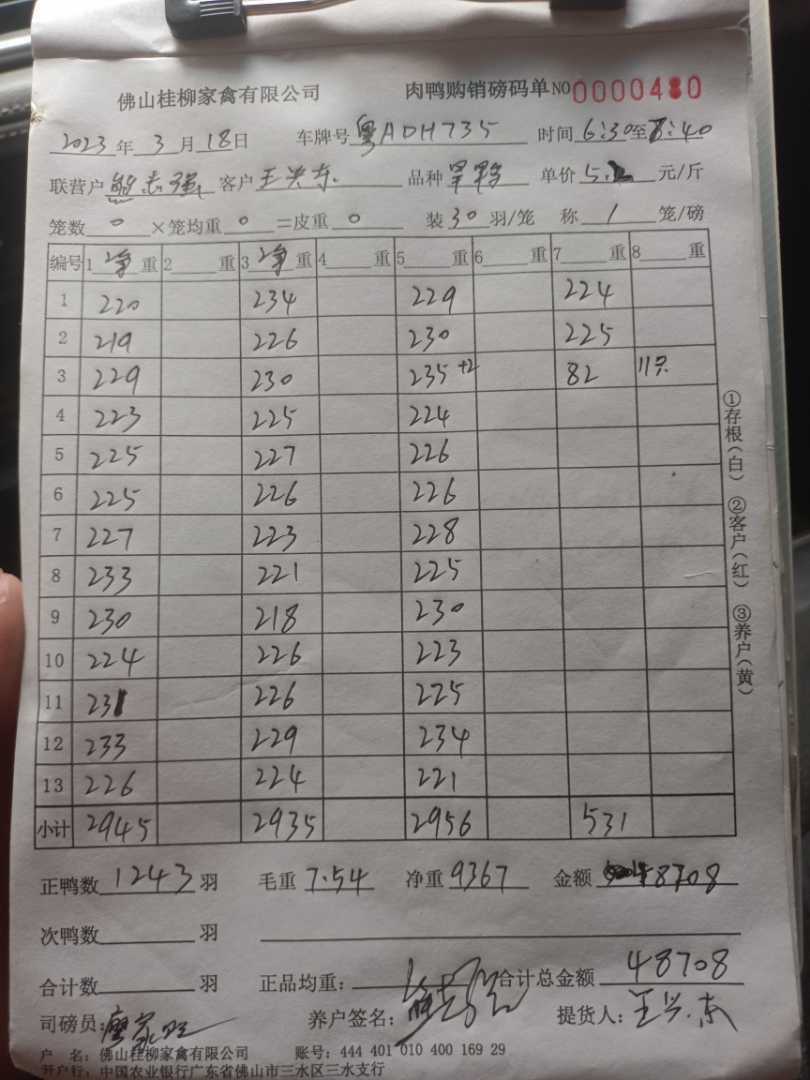 佛山桂柳家禽有限公司 肉鸭购销磅码单 NO 0000480
2023年3月18日 车牌号 粤ADH735 时间 6:30至8:40
联营户 熊志强 客户 王兴东 品种 单价 5.2 元/斤
笼数 0 ×笼均重 0 =皮重 0 装 30 羽/笼 称 1 笼/磅
编号 1 净 重 2 重 3 净 重 4 重 5 重 6 重 7 重 8 重
1 220 234 229 224
2 219 226 230 225
3 229 230 235 +2 82 11只
4 223 225 224
5 225 227 226
6 225 226 226
7 227 223 228
8 233 221 225
9 230 218 230
10 224 226 223
11 231 226 225
12 233 229 234
13 226 224 221
小计 2945 2935 2956 531
正鸭数 1243 羽 毛重 7.54 净重 9367 金额 48708
次鸭数 羽
合计数 羽 正品均重: 合计总金额 48708
司磅员: 廖家旺 养户签名: 熊志强 提货人: 王兴东
户 名: 佛山桂柳家禽有限公司 账号: 444 401 010 400 169 29
开户行: 中国农业银行广东省佛山市三水区三水支行
①存根(白) ②客户(红) ③养户(黄)